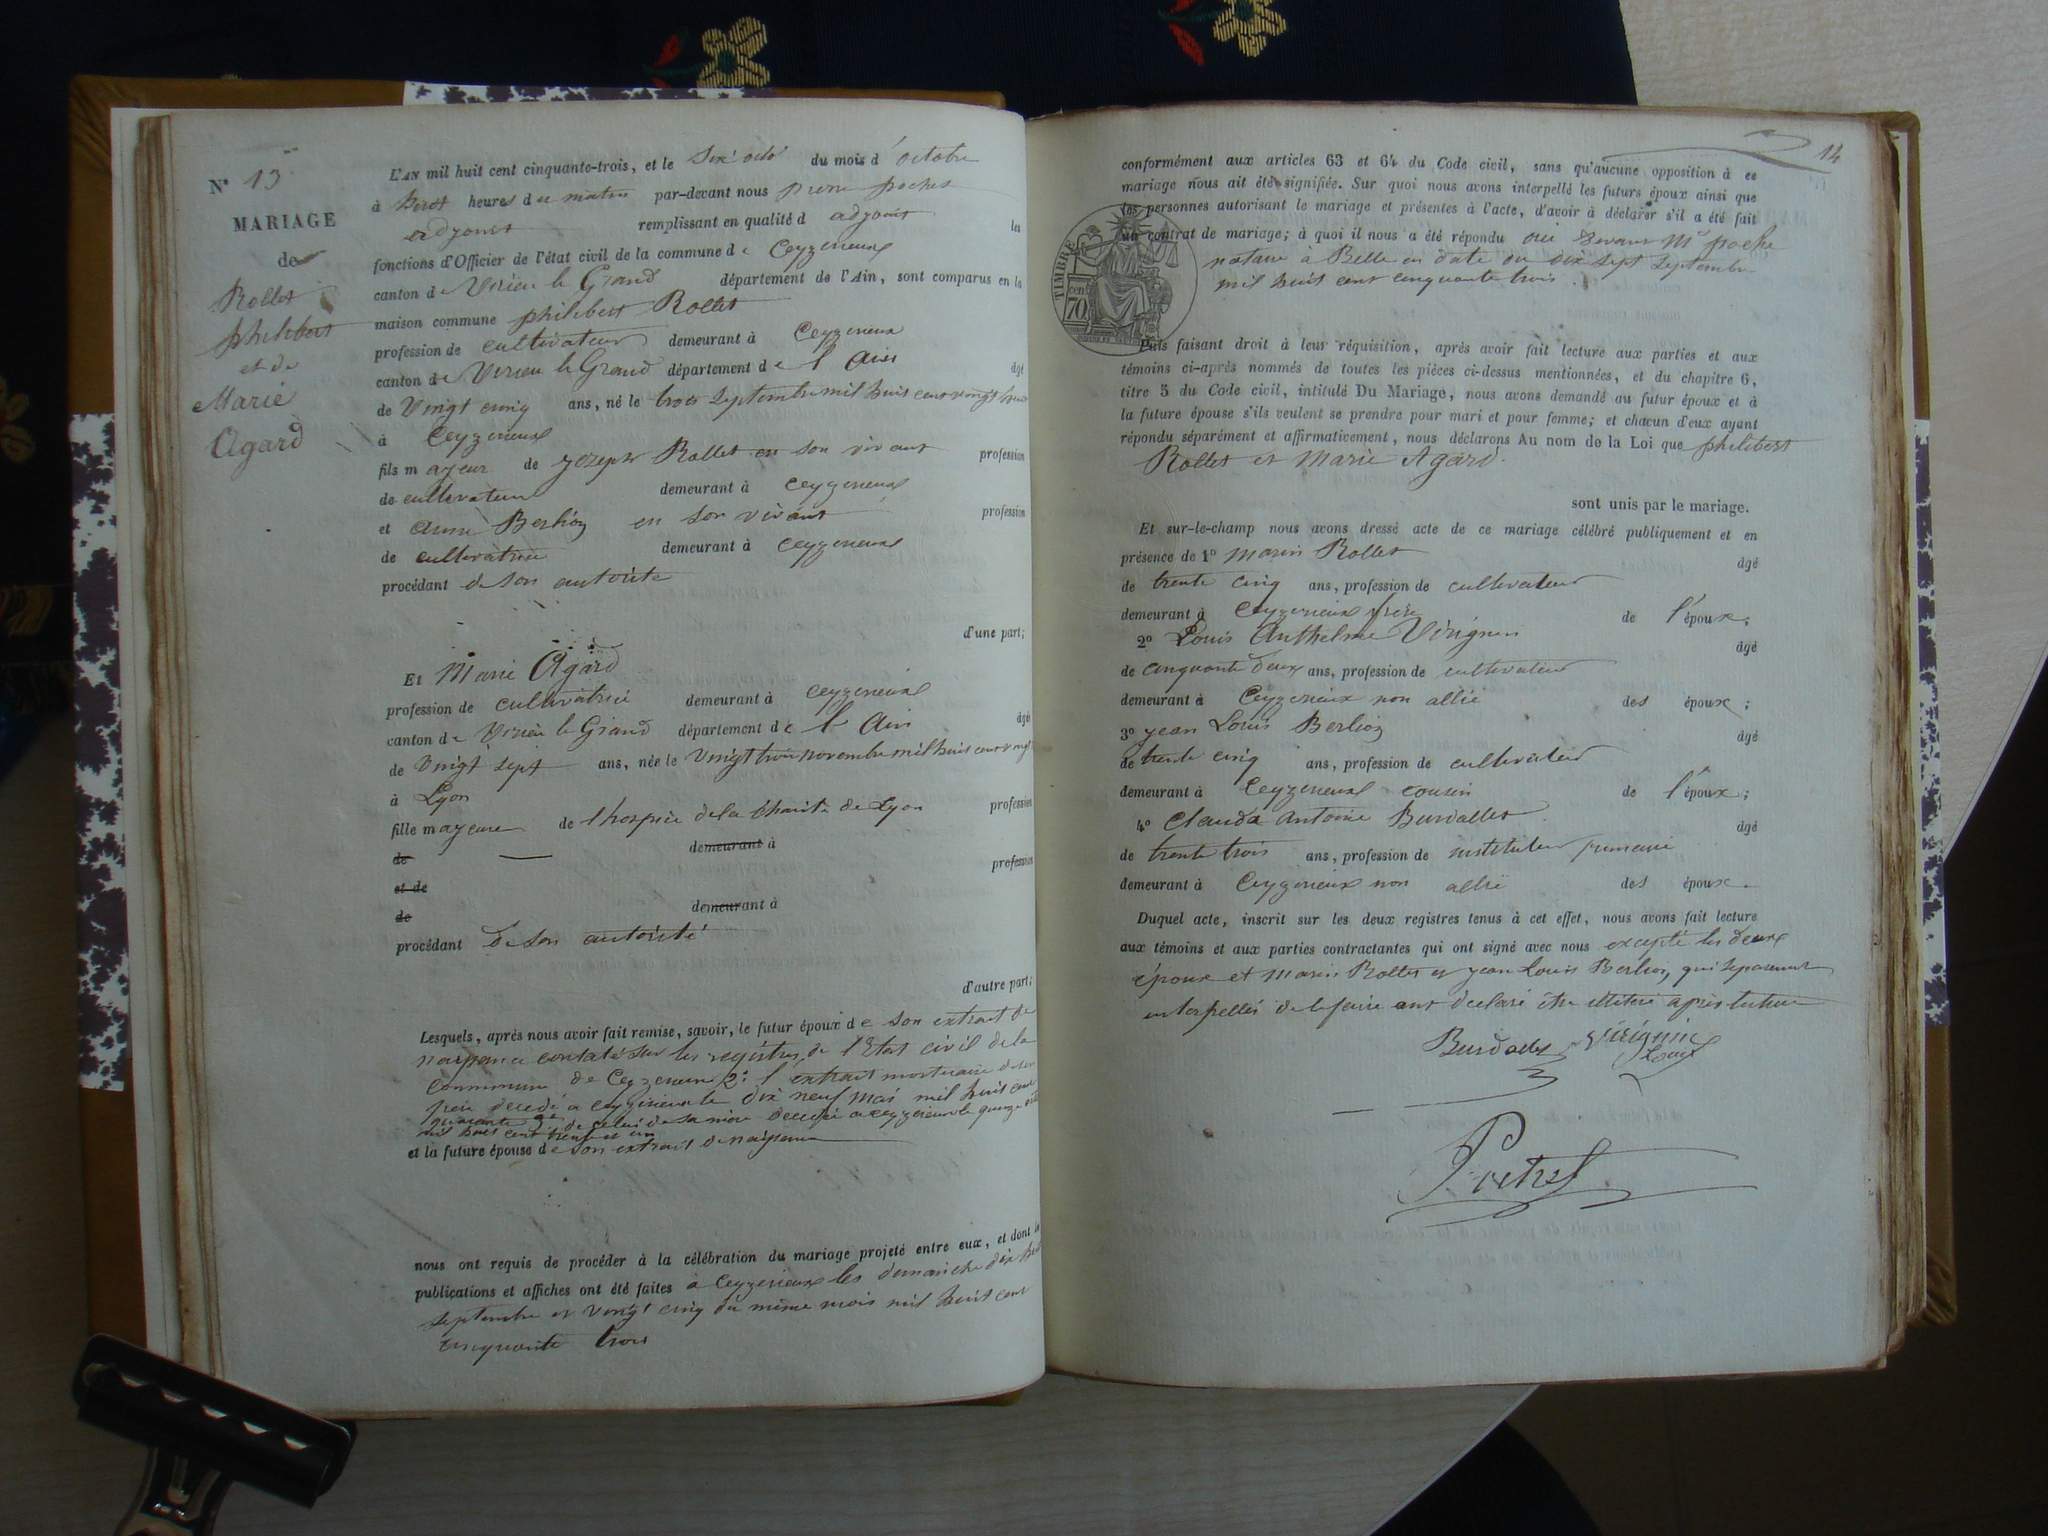 N° 13
MARIAGE
de
Rollet
philibert
et de
Marie
Agard
L'AN mil huit cent cinquante-trois, et le six du mois d'octobre
à heures du matin par-devant nous pierre poches
adjoint remplissant en qualité d adjoint les
fonctions d'Officier de l'état civil de la commune de Ceyzerieux
canton de Virieu le Grand département de l'Ain, sont comparus en la
maison commune philibert Rollet
profession de cultivateur demeurant à Ceyzerieux
canton de Virieu le Grand département de l'Ain âgé
de Vingt cinq ans, né le trois septembre mil huit cent vingt huit
à Ceyzerieux
fils mayeur de joseph Rollet en son vivant profession
de cultivateur demeurant à Ceyzerieux
et anne Berlioz en son vivant profession
de cultivatrice demeurant à Ceyzerieux
procédant de son autorité
d'une part;
Et Marie Agard
profession de cultivatrice demeurant à Ceyzerieux
canton de Virieu le Grand département de l'Ain âgé
de Vingt sept ans, née le Vingt trois novembre mil huit cent vingt
à Lyon
fille mayeure de l'hospice de la Charité de Lyon profession
de demeurant à
et de profession
de demeurant à
procédant de son autorité
d'autre part;
Lesquels, après nous avoir fait remise, savoir, le futur époux de son extrait de
naissance sur les registres de l'Etat civil de la
commune de Ceyzerieux 2° l'extrait mortuaire de son
père décédé a Ceyzerieux le dix neuf mai mil huit cent
quarante 3° de celui de sa mère décédée a Ceyzerieux le quinze
mil huit cent trente et un
et la future épouse de son extrait de naissance
nous ont requis de procéder à la célébration du mariage projeté entre eux, et dont les
publications et affiches ont été faites a Ceyzerieux les dimanche dix huit
septembre et vingt cinq du même mois mil huit cent
cinquante trois
14
conformément aux articles 63 et 64 du Code civil, sans qu'aucune opposition à ce
mariage nous ait été signifiée. Sur quoi nous avons interpellé les futurs époux ainsi que
les personnes autorisant le mariage et présentes à l'acte, d'avoir à déclarer s'il a été fait
un contrat de mariage; à quoi il nous a été répondu oui devant Me poche
notaire à Belley en date du dix sept septembre
mil huit cent cinquante trois.
TIMBRE
70 cent
Puis faisant droit à leur réquisition, après avoir fait lecture aux parties et aux
témoins ci-après nommés de toutes les pièces ci-dessus mentionnées, et du chapitre 6,
titre 5 du Code civil, intitulé Du Mariage, nous avons demandé au futur époux et à
la future épouse s'ils veulent se prendre pour mari et pour femme; et chacun d'eux ayant
répondu séparément et affirmativement, nous déclarons Au nom de la Loi que philibert
Rollet et Marie Agard.
sont unis par le mariage.
Et sur-le-champ nous avons dressé acte de ce mariage célébré publiquement et en
présence de 1° Marin Rollet âgé
de trente cinq ans, profession de cultivateur
demeurant à Ceyzerieux frère de l'époux;
2° Louis Anthelme Virignin âgé
de cinquante deux ans, profession de cultivateur
demeurant à Ceyzerieux non allié des époux;
3° jean Louis Berlioz âgé
de trente cinq ans, profession de cultivateur
demeurant à Ceyzerieux cousin de l'époux;
4° Claude Antoine Burdallet âgé
de trente trois ans, profession de instituteur primaire
demeurant à Ceyzerieux non allié des époux.
Duquel acte, inscrit sur les deux registres tenus à cet effet, nous avons fait lecture
aux témoins et aux parties contractantes qui ont signé avec nous excepté les deux
époux et Marin Rollet et jean Louis Berlioz, qui
interpellés de le faire ont déclaré être illitéré après lecture
Burdallet Virignin
Louis
Poches